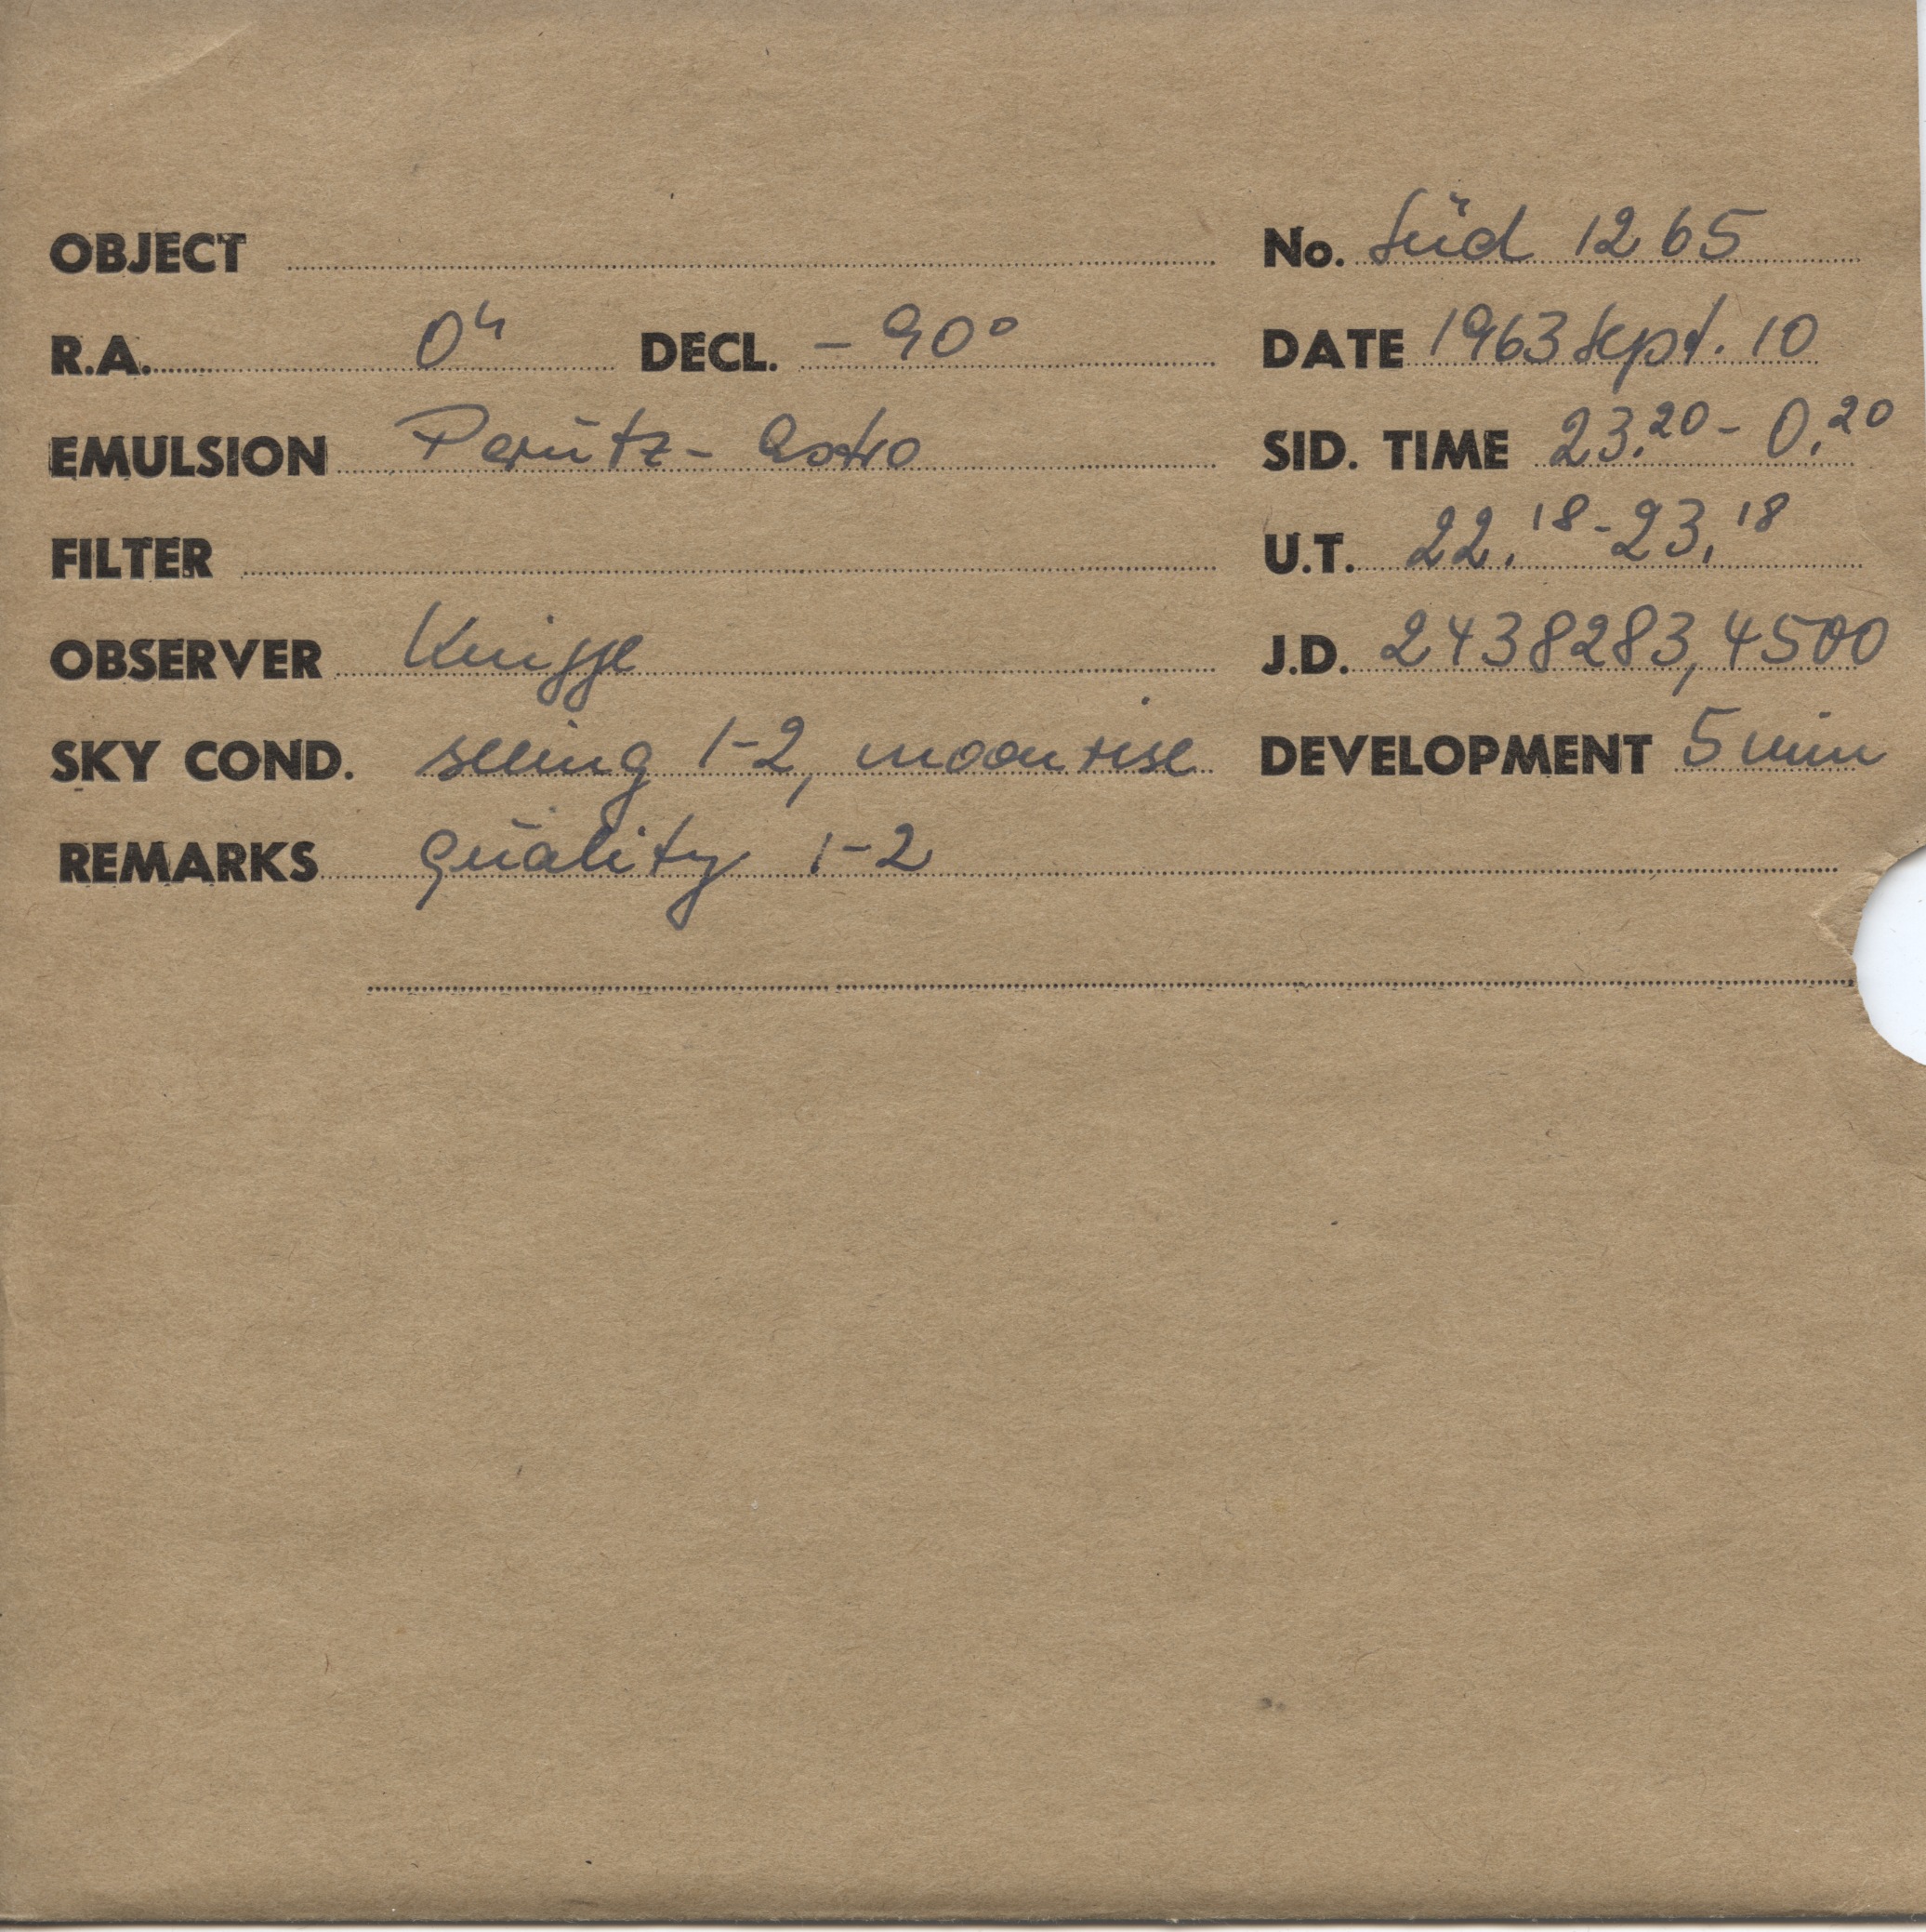 OBJECT No. Süd 1265
R.A. 0h DECL. - 90° DATE 1963 Sept. 10
EMULSION Perutz - Astro SID. TIME 23.20 - 0.20
FILTER U.T. 22.18 - 23.18
OBSERVER Knigge J.D. 2438283,4500
SKY COND. seeing 1-2, moonrise DEVELOPMENT 5 min
REMARKS quality 1-2